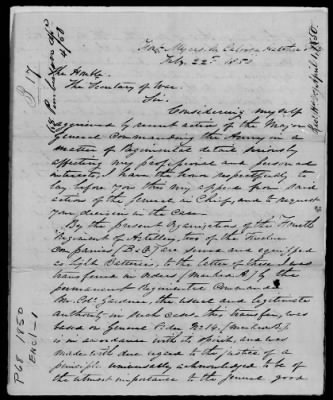 Fort Myers
Feby. 22d 1850
The Honble.
The Secretary of War.
Sir.
Considering myself
aggrieved by recent action of the Major
General Commanding the Army in a
matter of Regimental detail seriously
affecting my professional and personal
interests, I have the honor respectfully to
lay before you this my appeal from said
action of the General in Chief, and to request
your decision in the case.
By the present Organization of the Fourth
Regiment of Artillery, two of the Twelve
Companies, B & are armed and equipped
as Light Batteries, to the latter of these I was
transferred in orders, (marked A) by the
permanent Regimental Commander
Col: Gardner, the usual and legitimate
authority in such cases. This transfer was
based on General Order No.
is in accordance with its spirit, and was
made with due regard to the justice of a
principle universally acknowledged to be of
the utmost importance to the general good
P 17
April 1850.
P68 1850
ENCL-1